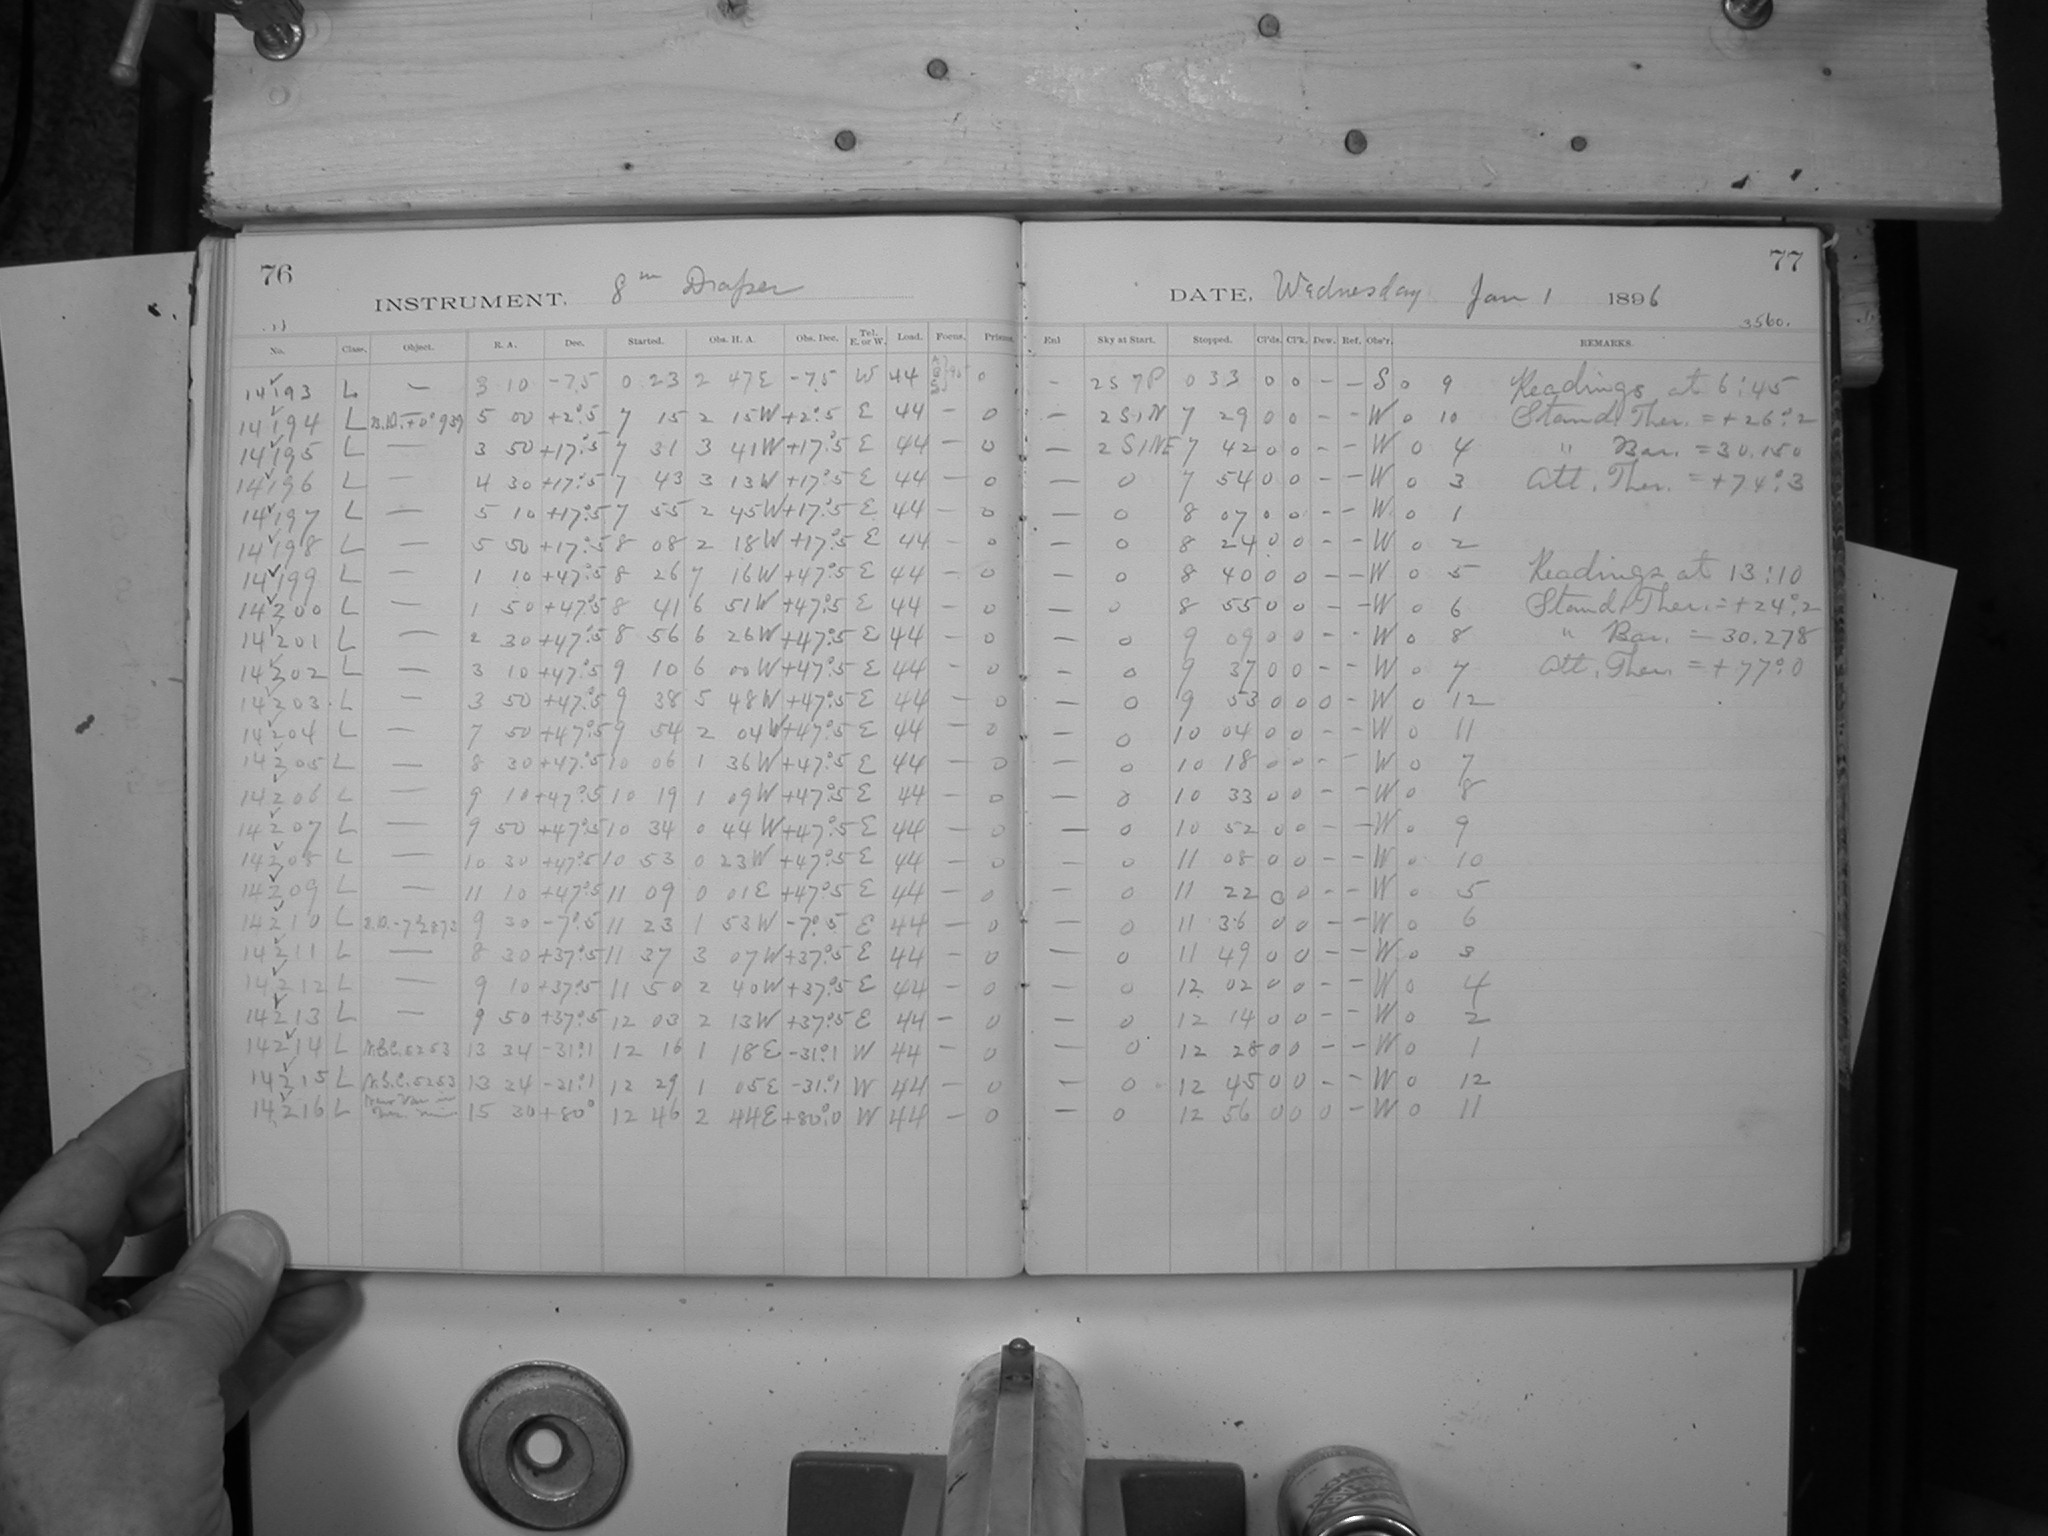 76
INSTRUMENT, 8 in Draper
No. Class. Object. R. A. Dec. Started. Obs. H. A. Obs. Dec. Tel. E. or W. Load. Focus. Prisms.
14193 L — 3 10 -7.5 0 23 2 47E -7.5 W 44 0
14194 L B.D.+0°939 5 00 +2°.5 7 15 2 15W +2°.5 E 44 — 0
14195 L — 3 50 +17°.5 7 31 3 41W +17°.5 E 44 — 0
14196 L — 4 30 +17°.5 7 43 3 13W +17°.5 E 44 — 0
14197 L — 5 10 +17°.5 7 55 2 45W +17°.5 E 44 — 0
14198 L — 5 50 +17°.5 8 08 2 18W +17°.5 E 44 — 0
14199 L — 1 10 +47°.5 8 26 7 16W +47°.5 E 44 — 0
14200 L — 1 50 +47°.5 8 41 6 51W +47°.5 E 44 — 0
14201 L — 2 30 +47°.5 8 56 6 26W +47°.5 E 44 — 0
14202 L — 3 10 +47°.5 9 10 6 00W +47°.5 E 44 — 0
14203 L — 3 50 +47°.5 9 38 5 48W +47°.5 E 44 — 0
14204 L — 7 50 +47°.5 9 54 2 04W +47°.5 E 44 — 0
14205 L — 8 30 +47°.5 10 06 1 36W +47°.5 E 44 — 0
14206 L — 9 10 +47°.5 10 19 1 09W +47°.5 E 44 — 0
14207 L — 9 50 +47°.5 10 34 0 44W +47°.5 E 44 — 0
14208 L — 10 30 +47°.5 10 53 0 23W +47°.5 E 44 — 0
14209 L — 11 10 +47°.5 11 09 0 01E +47°.5 E 44 — 0
14210 L B.D.-7°2873 9 30 -7°.5 11 23 1 53W -7°.5 E 44 — 0
14211 L — 8 30 +37°.5 11 37 3 07W +37°.5 E 44 — 0
14212 L — 9 10 +37°.5 11 50 2 40W +37°.5 E 44 — 0
14213 L — 9 50 +37°.5 12 03 2 13W +37°.5 E 44 — 0
14214 L N.G.C. 5253 13 34 -31°.1 12 16 1 18E -31°.1 W 44 — 0
14215 L N.G.C. 5253 13 34 -31°.1 12 29 1 05E -31°.1 W 44 — 0
14216 L New Var. in Urs. Min. 15 30 +80° 12 46 2 44E +80°.0 W 44 — 0
77
DATE, Wednesday Jan 1 1896
3560.
Enl Sky at Start. Stopped. Cl'ds. Cl'k. Dew. Ref. Obs'r. REMARKS.
- 2S 7P 0 33 0 0 - - S 0 9 Readings at 6:45
— 2S1N 7 29 0 0 - - W 0 10 Stand. Ther. = +26°.2
— 2S1NE 7 42 0 0 - - W 0 4 " Bar. = 30.150
— 0 7 54 0 0 - - W 0 3 Att. Ther. = +74°.3
— 0 8 07 0 0 - - W 0 1
— 0 8 24 0 0 - - W 0 2
— 0 8 40 0 0 - - W 0 5 Readings at 13:10
— 0 8 55 0 0 - - W 0 6 Stand. Ther. = +24°.2
— 0 9 09 0 0 - - W 0 8 " Bar. = 30.278
— 0 9 37 0 0 - - W 0 7 Att. Ther. = +77°.0
— 0 9 53 0 0 0 - W 0 12
— 0 10 04 0 0 - - W 0 11
— 0 10 18 0 0 - - W 0 7
— 0 10 33 0 0 - - W 0 8
— 0 10 52 0 0 - - W 0 9
— 0 11 08 0 0 - - W 0 10
— 0 11 22 0 0 - - W 0 5
— 0 11 36 0 0 - - W 0 6
— 0 11 49 0 0 - - W 0 3
— 0 12 02 0 0 - - W 0 4
— 0 12 14 0 0 - - W 0 2
— 0 12 28 0 0 - - W 0 1
— 0 12 45 0 0 - - W 0 12
— 0 12 56 0 0 0 - W 0 11